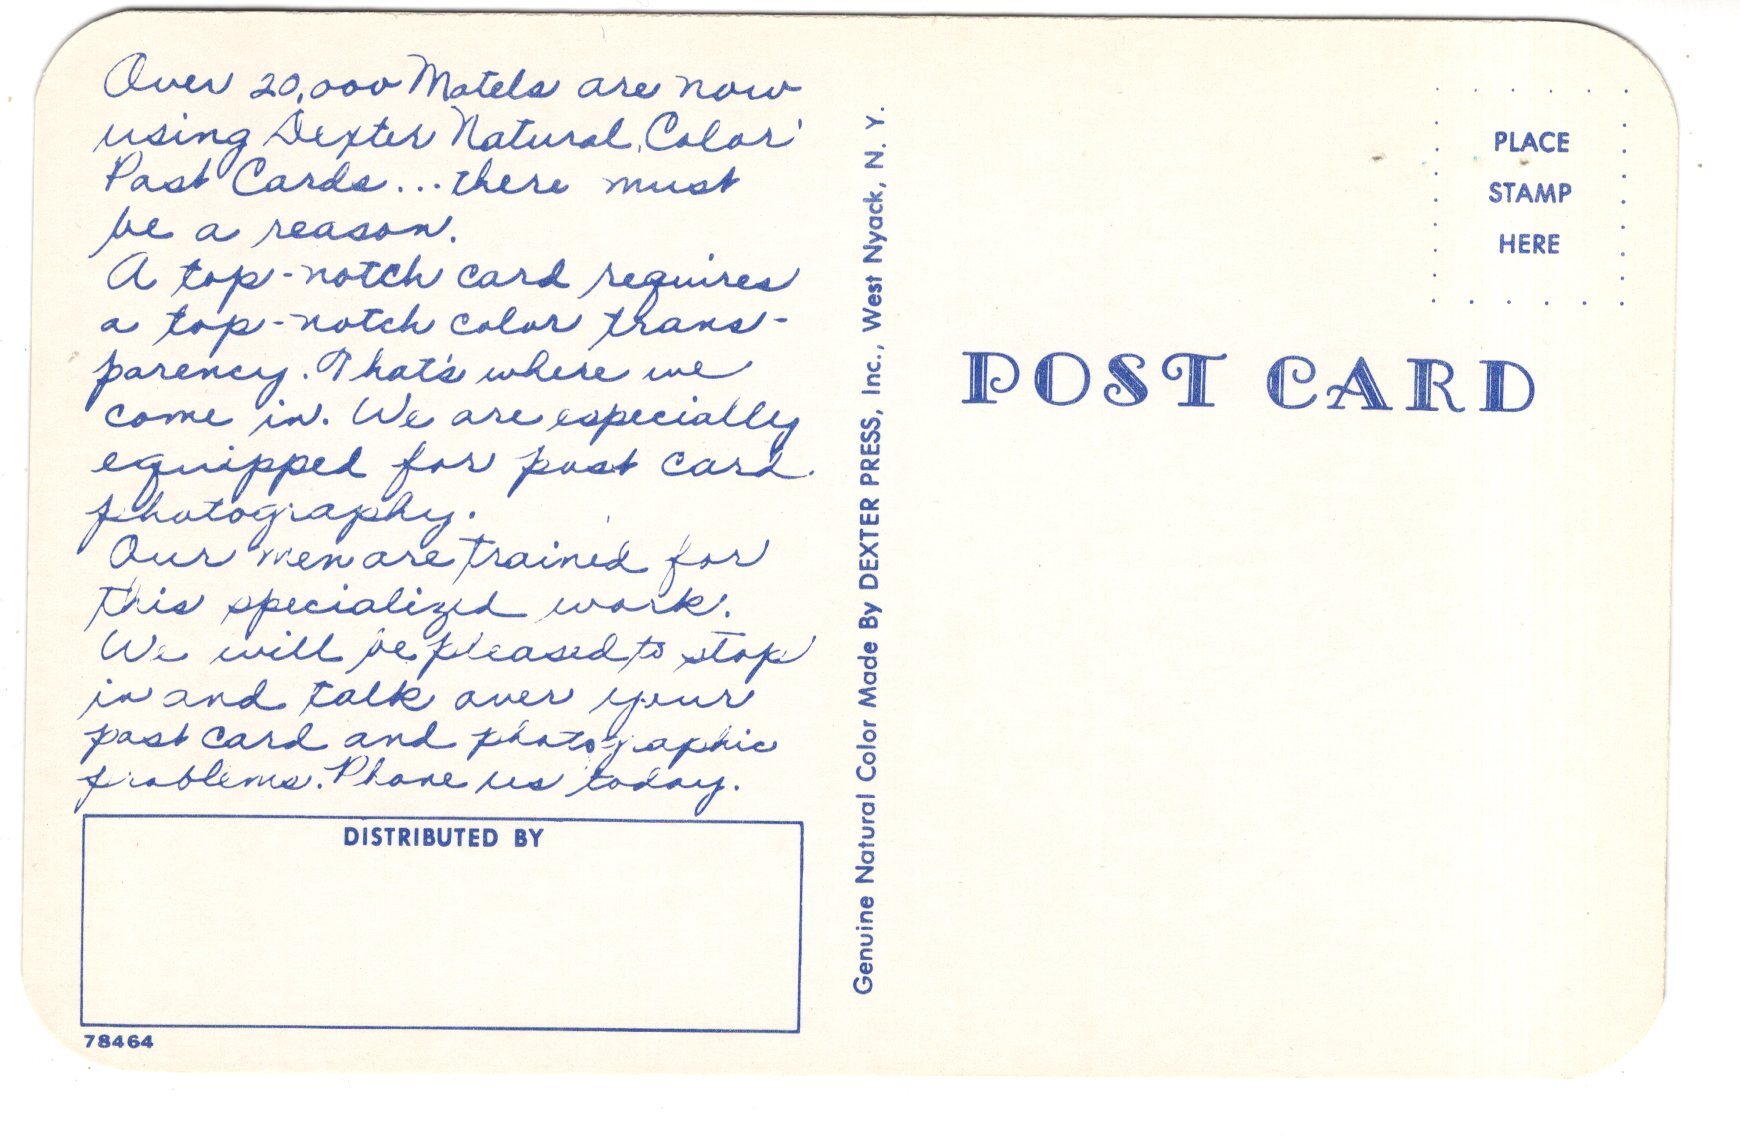 Over 20,000 Motels are now
using Dexter Natural Color
Post Cards... there must
be a reason.
A top-notch card requires
a top-notch color trans-
parency. That's where we
come in. We are especially
equipped for post card
photography.
Our men are trained for
this specialized work.
We will be pleased to stop
in and talk over your
post card and photographic
problems. Phone us today.
DISTRIBUTED BY
78464
Genuine Natural Color Made By DEXTER PRESS, Inc., West Nyack, N. Y.
PLACE
STAMP
HERE
POST CARD